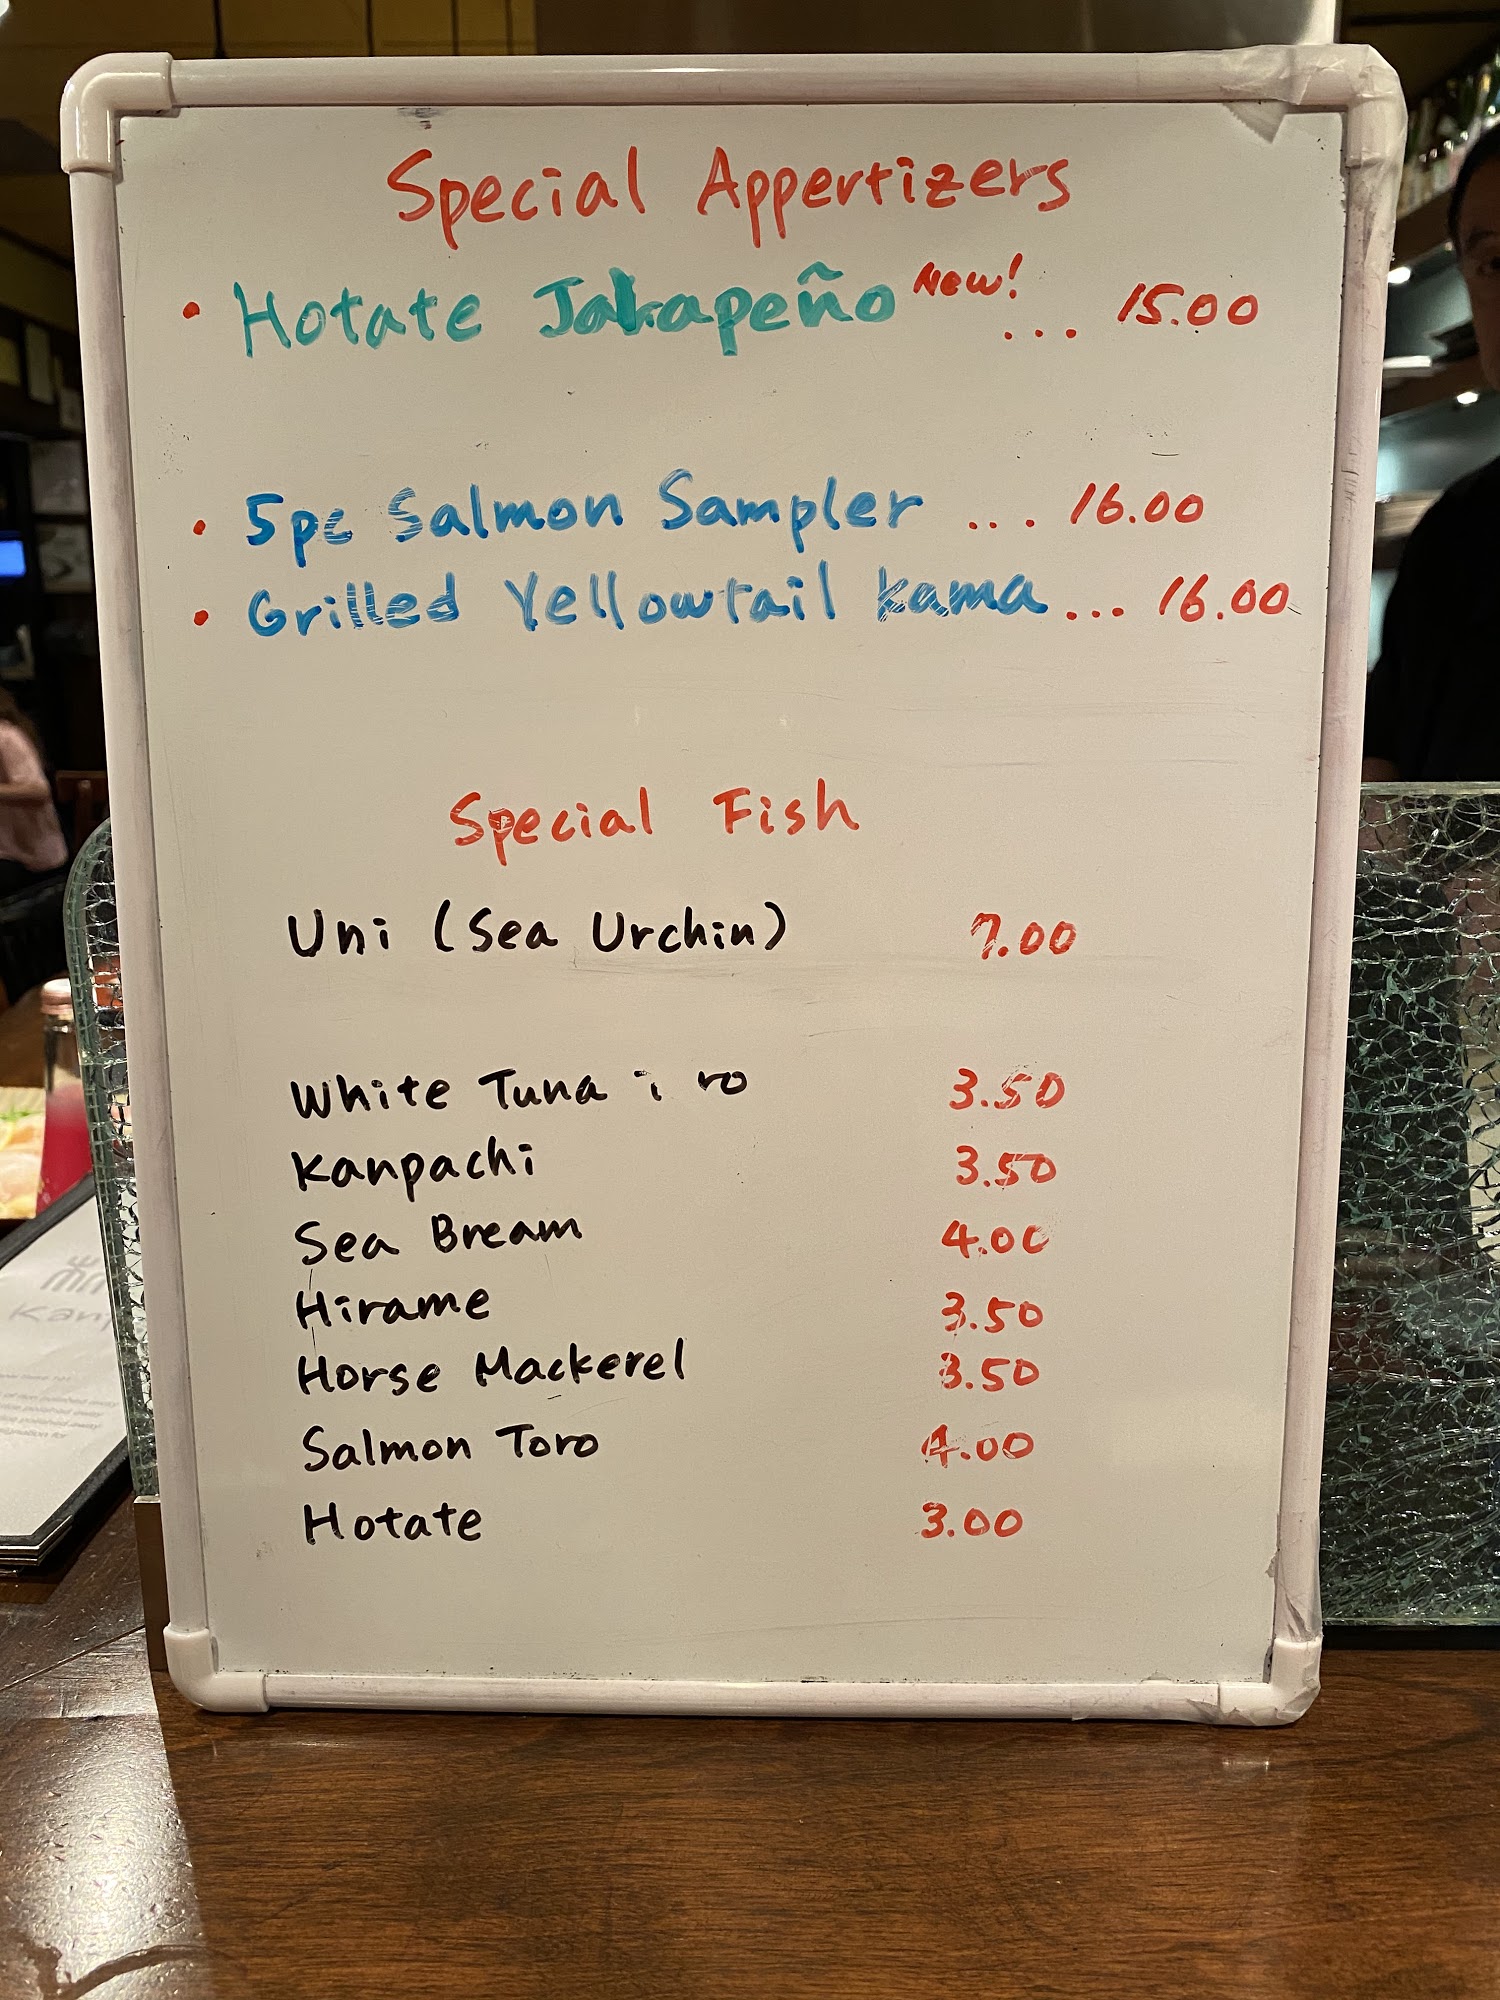 Special Appertizers
• Hotate Jalapeño New! ... 15.00
• 5pc Salmon Sampler ... 16.00
• Grilled Yellowtail Kama ... 16.00
Special Fish
Uni (Sea Urchin) 7.00
White Tuna ro 3.50
Kanpachi 3.50
Sea Bream 4.00
Hirame 3.50
Horse Mackerel 3.50
Salmon Toro 4.00
Hotate 3.00